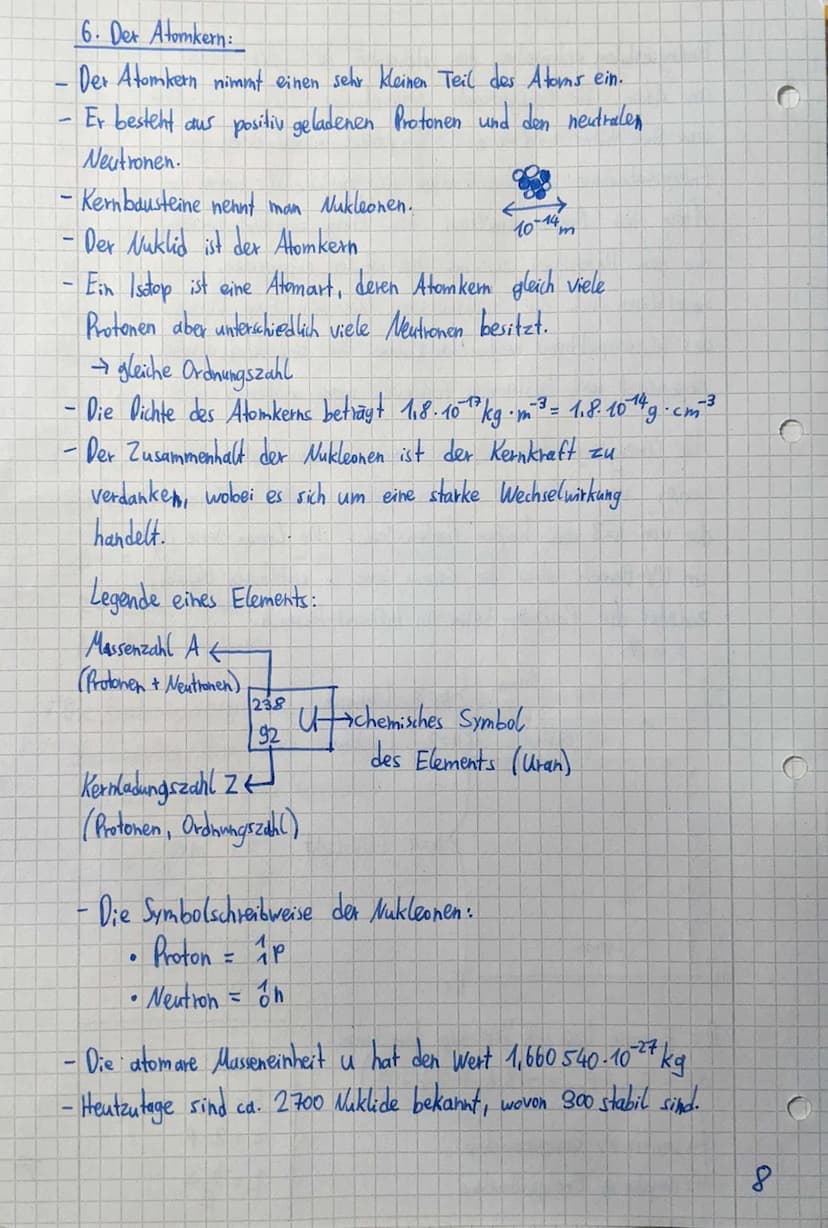 6. Der Atomkern:
- Der Atomkern nimmt einen sehr kleinen Teil des Atoms ein.
- Er besteht aus positiv geladenen Protonen und den neutralen
Neutronen.
- Kernbausteine nennt man Nukleonen.
10⁻¹⁴m
- Der Nuklid ist der Atomkern
- Ein Isotop ist eine Atomart, deren Atomkern gleich viele
Protonen aber unterschiedlich viele Neutronen besitzt.
→ gleiche Ordnungszahl
- Die Dichte des Atomkerns beträgt 1,8·10⁻¹⁷kg·m⁻³ = 1,8·10⁻¹⁴g·cm⁻³
- Der Zusammenhalt der Nukleonen ist der Kernkraft zu
verdanken, wobei es sich um eine starke Wechselwirkung
handelt.
Legende eines Elements:
Massenzahl A
(Protonen + Neutronen)
238
92
U → chemisches Symbol
des Elements (Uran)
Kernladungszahl Z
(Protonen, Ordnungszahl)
- Die Symbolschreibweise der Nukleonen:
• Proton = ¹₁p
• Neutron = ¹₀n
- Die atomare Masseneinheit u hat den Wert 1,660 540·10⁻²⁷kg
- Heutzutage sind ca. 2700 Nuklide bekannt, wovon 300 stabil sind.
8